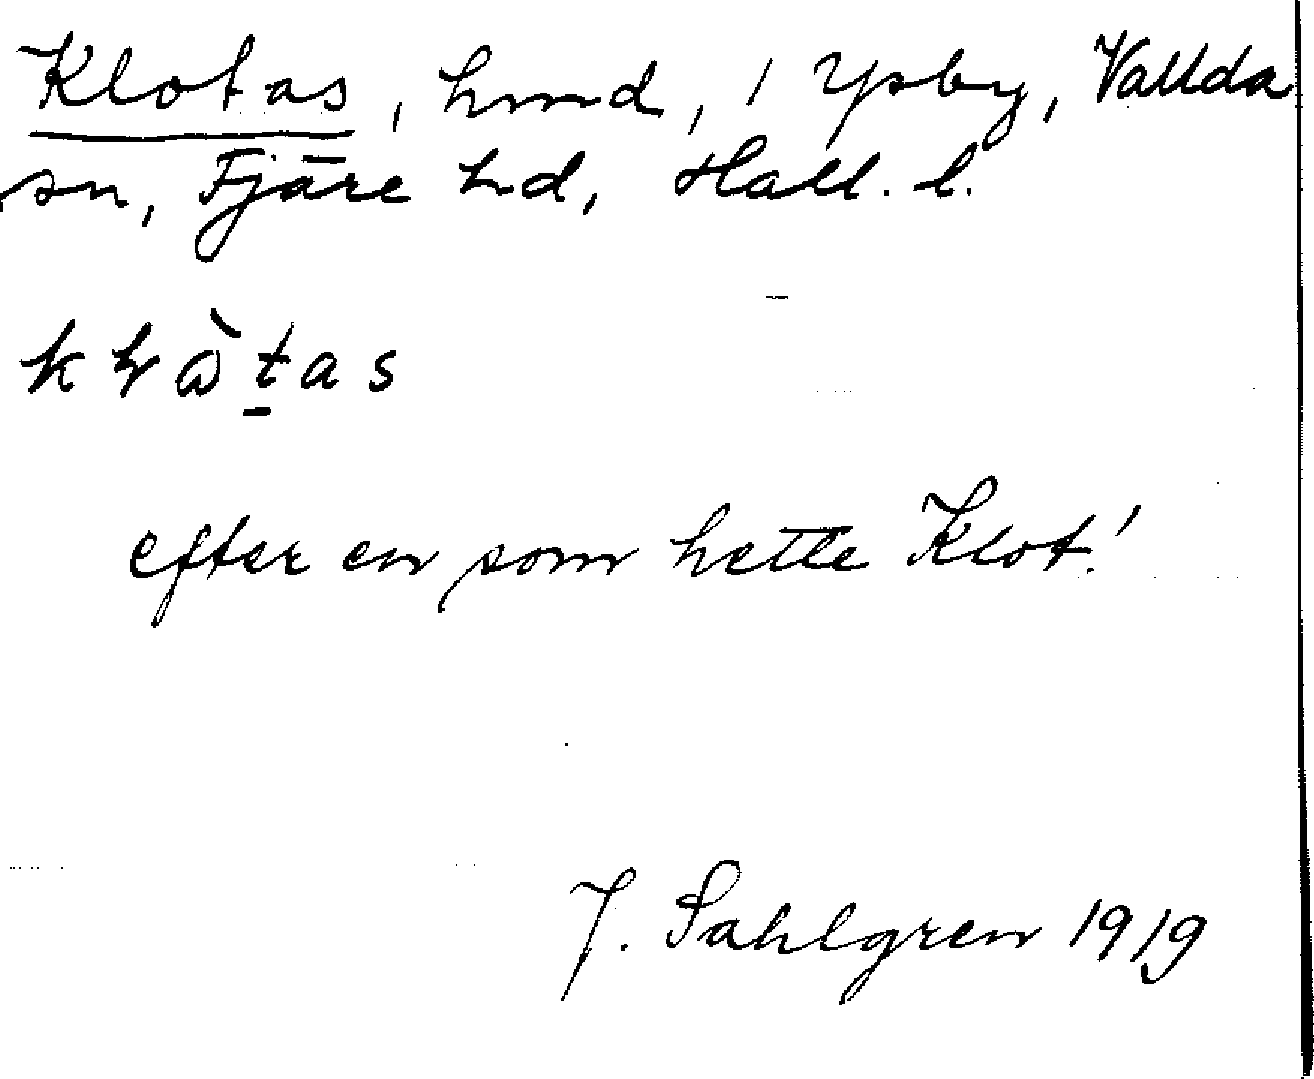 Klotas, hmd, i Ysby, Vallda
sn, Fjäre hd, Hall. l.
efter en som hette Klot!
J. Sahlgren 1919